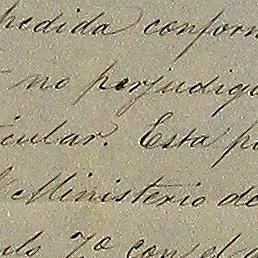 pedida conform
no perjudiqu
ticular. Esta p
Ministerio de
7º con el a